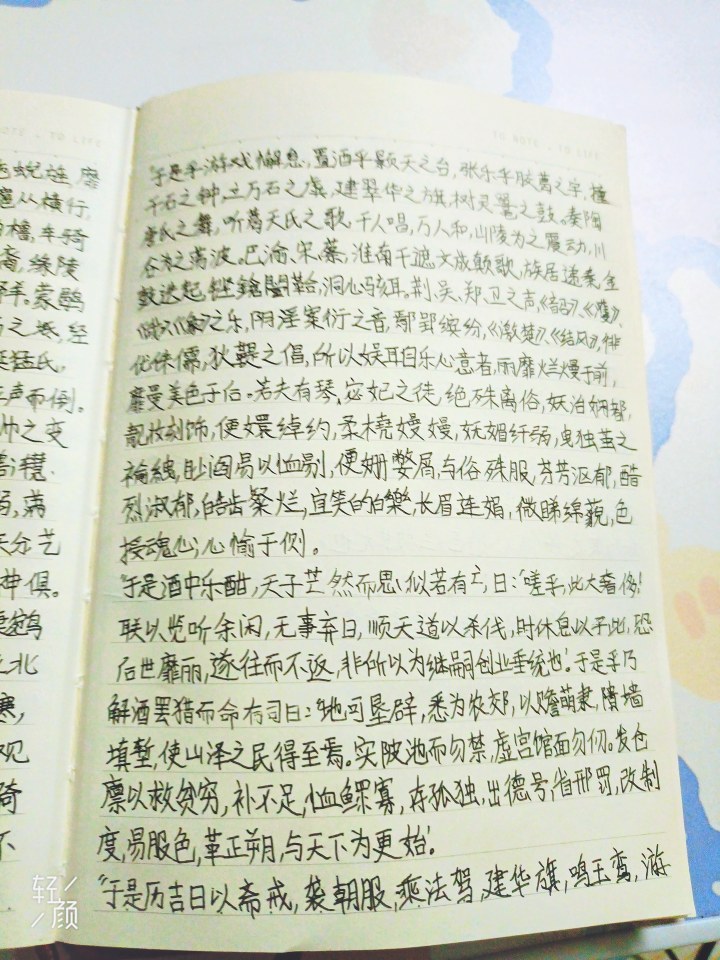 TO NOTE · TO LIFE
"于是乎游戏懈怠,置酒乎颢天之台,张乐乎胶葛之宇,撞
千石之钟,立万石之虡,建翠华之旗,树灵鼍之鼓。奏陶
唐氏之舞,听葛天氏之歌,千人唱,万人和,山陵为之震动,川
谷为之荡波。巴渝、宋、蔡,淮南干遮,文成颠歌,族居递奏,金
鼓迭起,铿鎗闛鞈,洞心骇耳。荆、吴、郑、卫之声,《韶》、《濩》、
《武》、《象》之乐,阴淫案衍之音,鄢郢缤纷,《激楚》、《结风》,俳
优侏儒,狄鞮之倡,所以娱耳目乐心意者,丽靡烂熳于前,
靡曼美色于后。若夫青琴、宓妃之徒,绝殊离俗,妖冶娴都,
靓妆刻饰,便嬛绰约,柔桡嫚嫚,妩媚纤弱,曳独茧之
褕绁,眇阎易以恤削,便姗嫳屑,与俗殊服,芬芳沤郁,酷
烈淑郁,皓齿粲烂,宜笑的皪,长眉连娟,微睇绵藐,色
授魂心,心愉于侧。
"于是酒中乐酣,天子芒然而思,似若有亡,曰:'嗟乎,此大奢侈!
朕以览听余闲,无事弃日,顺天道以杀伐,时休息以于此,恐
后世靡丽,遂往而不返,非所以为继嗣创业垂统也'。于是乎乃
解酒罢猎而命有司曰:'地可垦辟,悉为农郊,以赡萌隶,隤墙
填堑,使山泽之民得至焉。实陂池而勿禁,虚宫馆而勿仞。发仓
廪以救贫穷,补不足,恤鳏寡,存孤独,出德号,省刑罚,改制
度,易服色,革正朔,与天下为更始'。
"于是历吉日以斋戒,袭朝服,乘法驾,建华旗,鸣玉鸾,游
从横行,
车骑
缘陵
之坻,经
氏,
声而倒。
帅之变
满
艺
神俱。
北
寒,
观
骑
不
轻颜